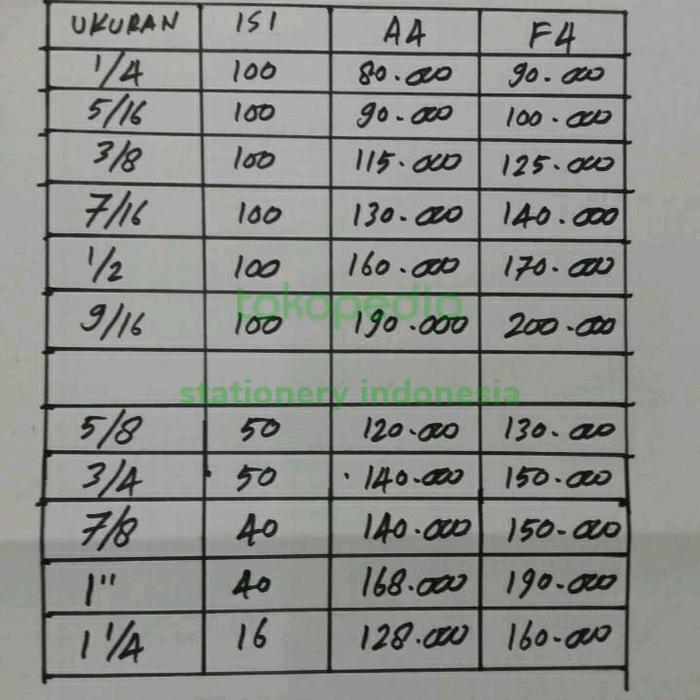 UKURAN ISI A4 F4
1/4 100 80.000 90.000
5/16 100 90.000 100.000
3/8 100 115.000 125.000
7/16 100 130.000 140.000
1/2 100 160.000 170.000
tokopedia
9/16 100 190.000 200.000
stationery indonesia
5/8 50 120.000 130.000
3/4 50 140.000 150.000
7/8 40 140.000 150.000
1" 40 168.000 190.000
1 1/4 16 128.000 160.000